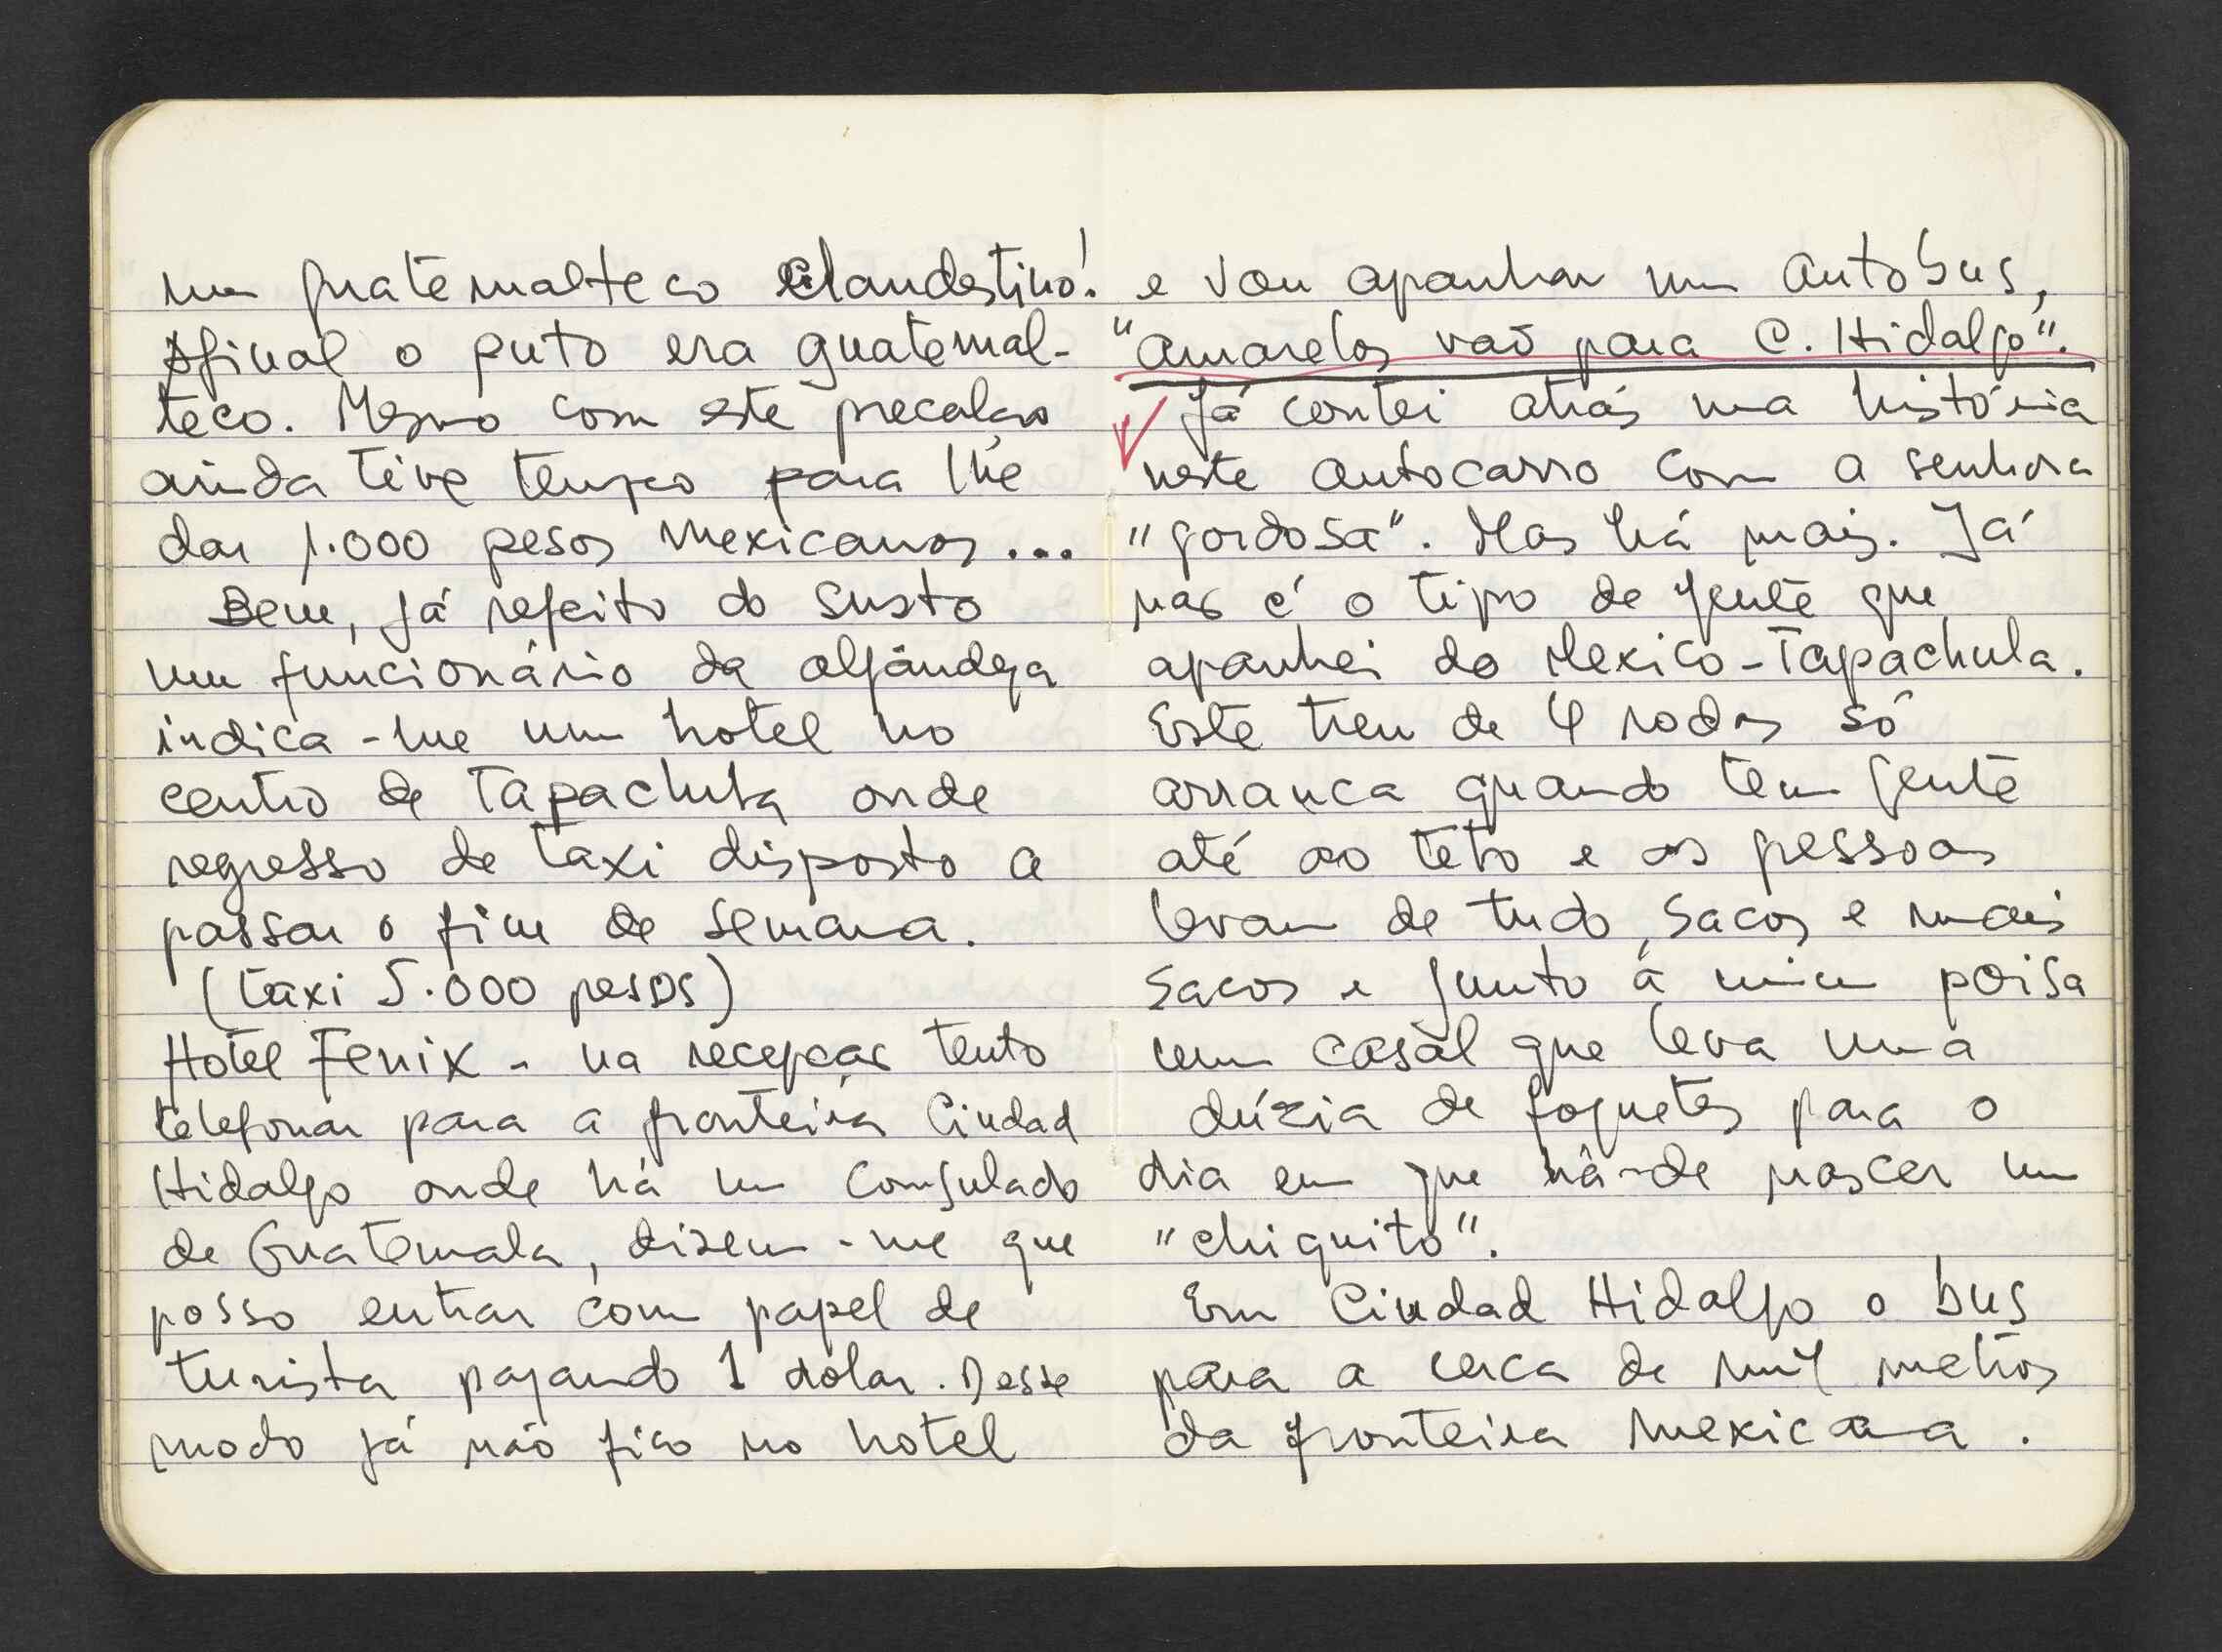 um guatemalteco clandestino!
Afinal o puto era guatemal-
teco. Mesmo com este precalço
ainda tive tempo para lhe
dar 1.000 pesos mexicanos...
Bem, já refeito do susto
um funcionário da alfândega
indica-me um hotel no
centro de Tapachula onde
regresso de taxi disposto a
passar o fim de semana.
(taxi 5.000 pesos)
Hotel Fenix - na recepção tento
telefonar para a fronteira Ciudad
Hidalgo onde há um Consulado
de Guatemala, dizem-me que
posso entrar com papel de
turista pagando 1 dolar. Desse
modo já não fico no hotel
e vou apanhar um autobus,
"amarelos vão para C. Hidalgo".
Já contei atrás uma história
neste autocarro com a senhora
"gordosa". Mas há mais. Já
nas é o tipo de gente que
apanhei do Mexico-Tapachula.
Este treu de 4 rodas só
arranca quando tem gente
até ao teto e as pessoas
levam de tudo, sacos e mais
sacos e junto a mim poisa
um casal que leva uma
dúzia de foguetes para o
dia em que há-de nascer um
"chiquito".
Em Ciudad Hidalgo o bus
para a cerca de mil metros
da fronteira mexicana.